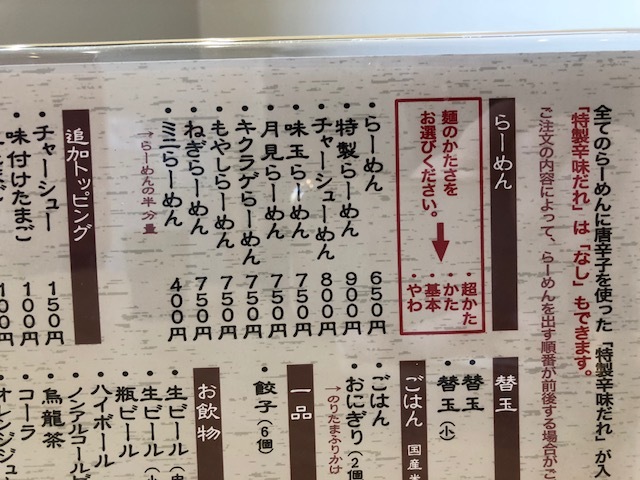 全てのらーめんに唐辛子を使った「特製辛味だれ」が入
「特製辛味だれ」は「なし」もできます。
ご注文の内容によって、らーめんを出す順番が前後する場合がご
らーめん
麺のかたさを
お選びください。
→
・超かた
・かた
・基本
・やわ
・らーめん 650円
・特製らーめん 900円
・チャーシューめん 800円
・味玉らーめん 750円
・月見らーめん 750円
・キクラゲらーめん 750円
・もやしらーめん 750円
・ねぎらーめん 750円
・ミニらーめん 400円
→らーめんの半分量
追加トッピング
・チャーシュー 150円
・味付けたまご 100円
100円
替玉
・替玉
・替玉(小)
ごはん 国産米
・ごはん
・おにぎり(2個
→のりたまふりかけ
一品
・餃子(6個)
お飲物
・生ビール(中
・生ビール(小
・瓶ビール
・ハイボール
・ノンアルコールビ
・烏龍茶
・コーラ
・オレンジジュ